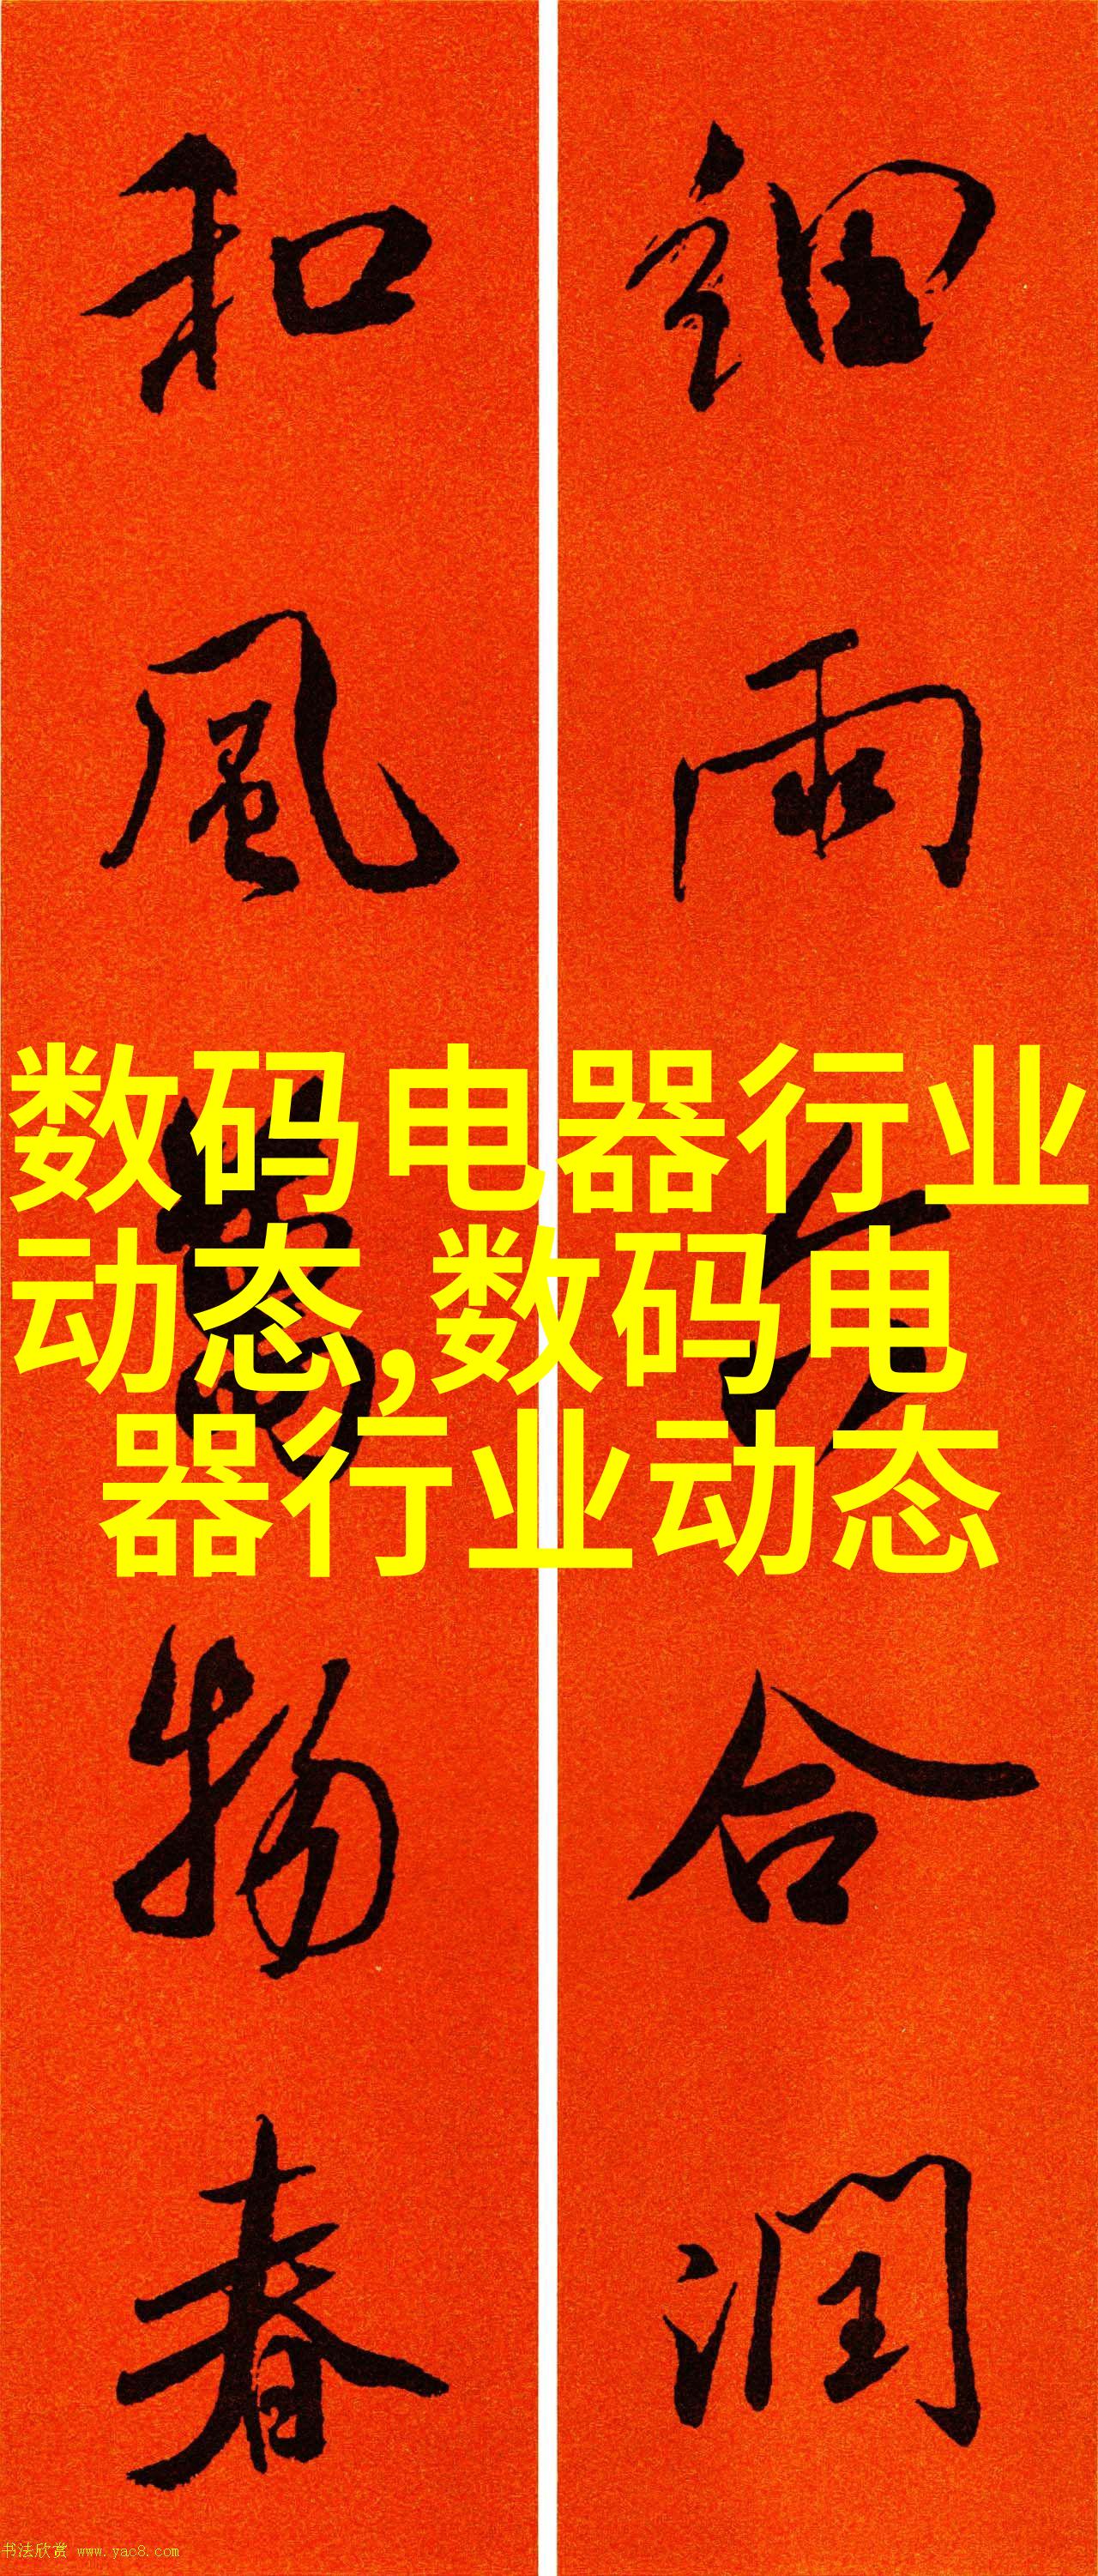 細雨六合潤
和風萬物春
数码电器行业
动态,数码电
器行业动态
书法欣赏 www.yac8.com